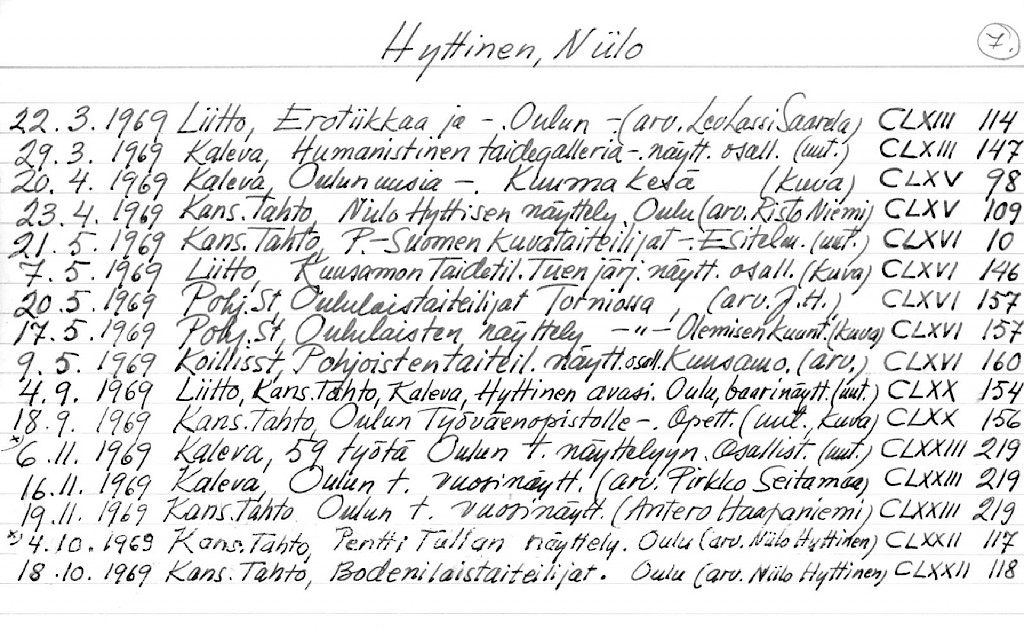 Hyttinen, Niilo 7.
22.3.1969 Liitto, Erotiikkaa ja -. Oulun -(arv. Leo Lassi Saarela) CLXIII 114
29.3.1969 Kaleva, Humanistinen taidegalleria -. näytt. osall. (uut.) CLXIII 147
20.4.1969 Kaleva, Oulun uusia -. Kuuma kesä (kuva) CLXV 98
23.4.1969 Kans.Tahto, Niilo Hyttisen näyttely. Oulu (arv. Risto Niemi) CLXV 109
21.5.1969 Kans.Tahto, P-Suomen kuvataiteilijat -. Esitelm. (uut.) CLXVI 10
7.5.1969 Liitto, Kuusamon Taidetil. Tuen järj. näytt. osall. (kuva) CLXVI 146
20.5.1969 Pohj.St, Oululaistaiteilijat Torniossa, (arv. J.H.) CLXVI 157
17.5.1969 Pohj.St, Oululaisten näyttely -"- Olemisen kuunt. (kuva) CLXVI 157
9.5.1969 Koillisst, Pohjoisten taiteil. näytt. osall. Kuusamo. (arv.) CLXVI 160
4.9.1969 Liitto, Kans.Tahto, Kaleva, Hyttinen avasi. Oulu, baarinäytt. (uut.) CLXX 154
18.9.1969 Kans.Tahto, Oulun Työväenopistolle -. Opett. (uut., kuva) CLXX 156
x) 6.11.1969 Kaleva, 59 työtä Oulun t. näyttelyyn. Osallist. (uut.) CLXXIII 219
16.11.1969 Kaleva, Oulun t. vuosinäytt. (arv. Pirkko Seitamaa) CLXXIII 219
19.11.1969 Kans.Tahto Oulun t. vuosinäytt. (Antero Haapaniemi) CLXXIII 219
x) 4.10.1969 Kans.Tahto, Pentti Tullan näyttely. Oulu (arv. Niilo Hyttinen) CLXXII 117
18.10.1969 Kans.Tahto, Bodenilaistaiteilijat. Oulu (arv. Niilo Hyttinen) CLXXII 118